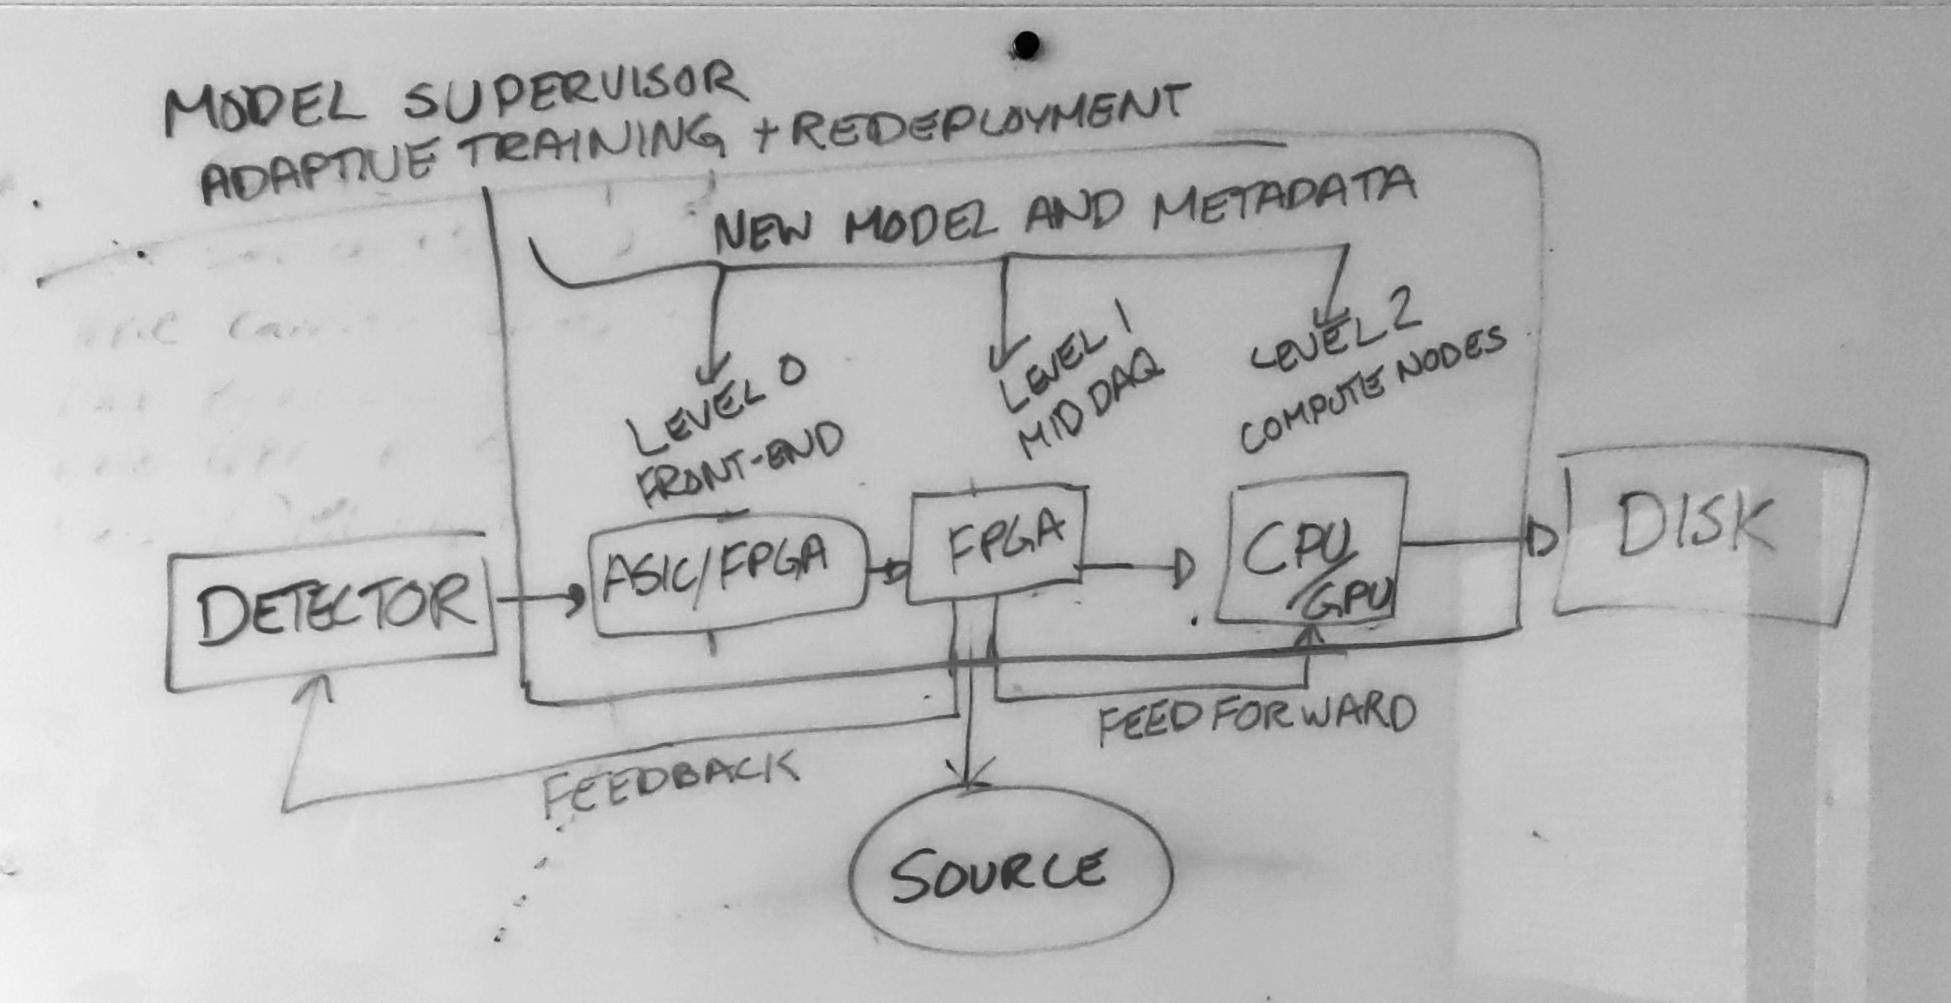 MODEL SUPERVISOR
ADAPTIVE TRAINING + REDEPLOYMENT
NEW MODEL AND METADATA
LEVEL 0
FRONT-END
LEVEL 1
MID DAQ
LEVEL 2
COMPUTE NODES
DETECTOR
ASIC/FPGA
FPGA
CPU
/GPU
DISK
FEEDBACK
FEED FORWARD
SOURCE